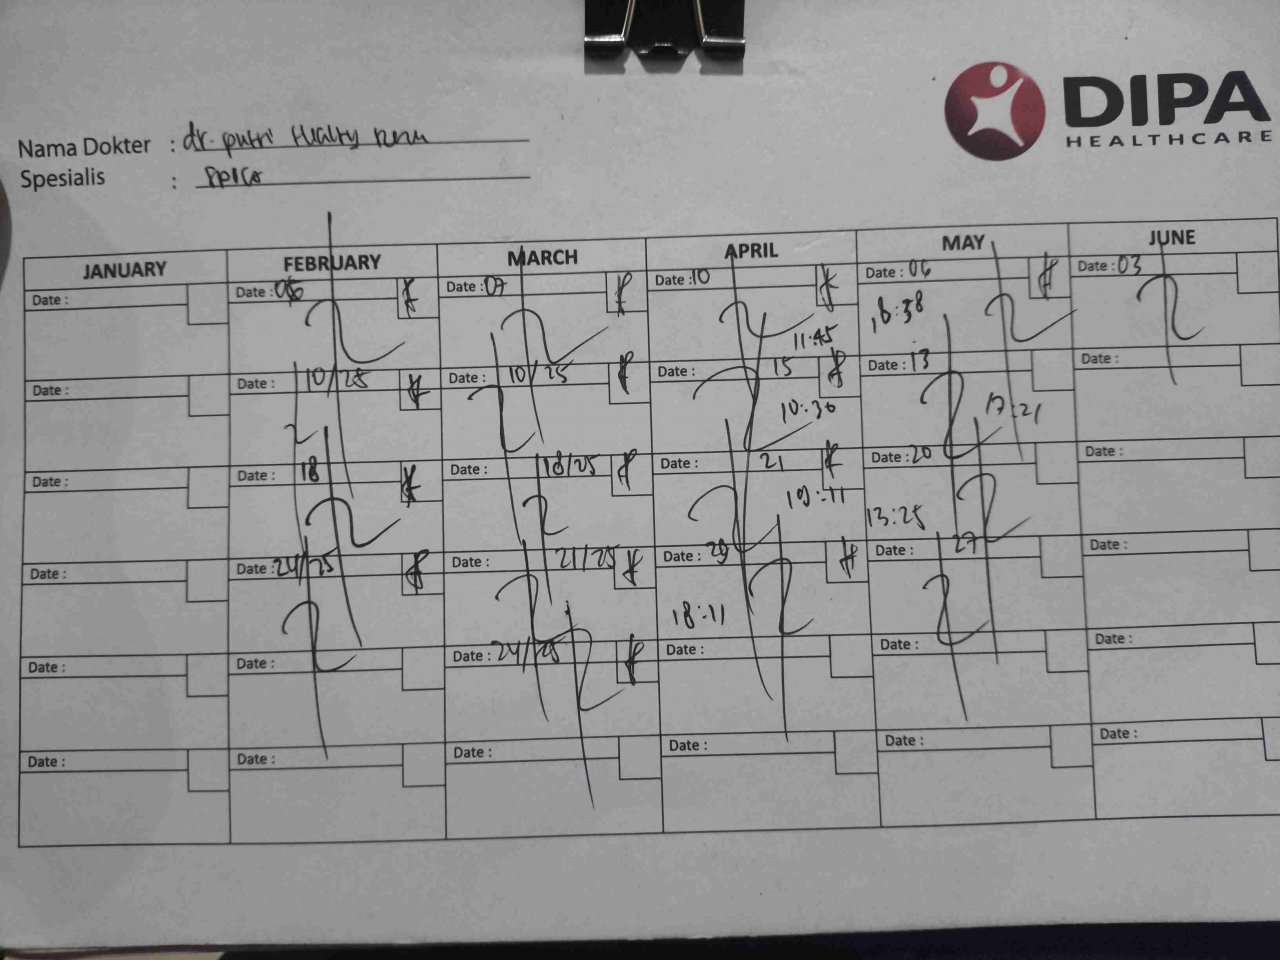 DIPA
HEALTHCARE
Nama Dokter : dr. putri Healty
Spesialis :
JANUARY FEBRUARY MARCH APRIL MAY JUNE
Date : Date : Date : 07 Date : 10 Date : 06 Date : 03
11:45 18:38
Date : Date : 10/25 Date : 10/25 Date : 15 Date : 13 Date :
10:30 17:21
Date : Date : 18 Date : 18/25 Date : 21 Date : 20 Date :
13:25
Date : Date : 24/25 Date : 21/25 Date : 29 Date : 27 Date :
18:11
Date : Date : Date : 24/25 Date : Date : Date :
Date : Date : Date : Date : Date : Date :